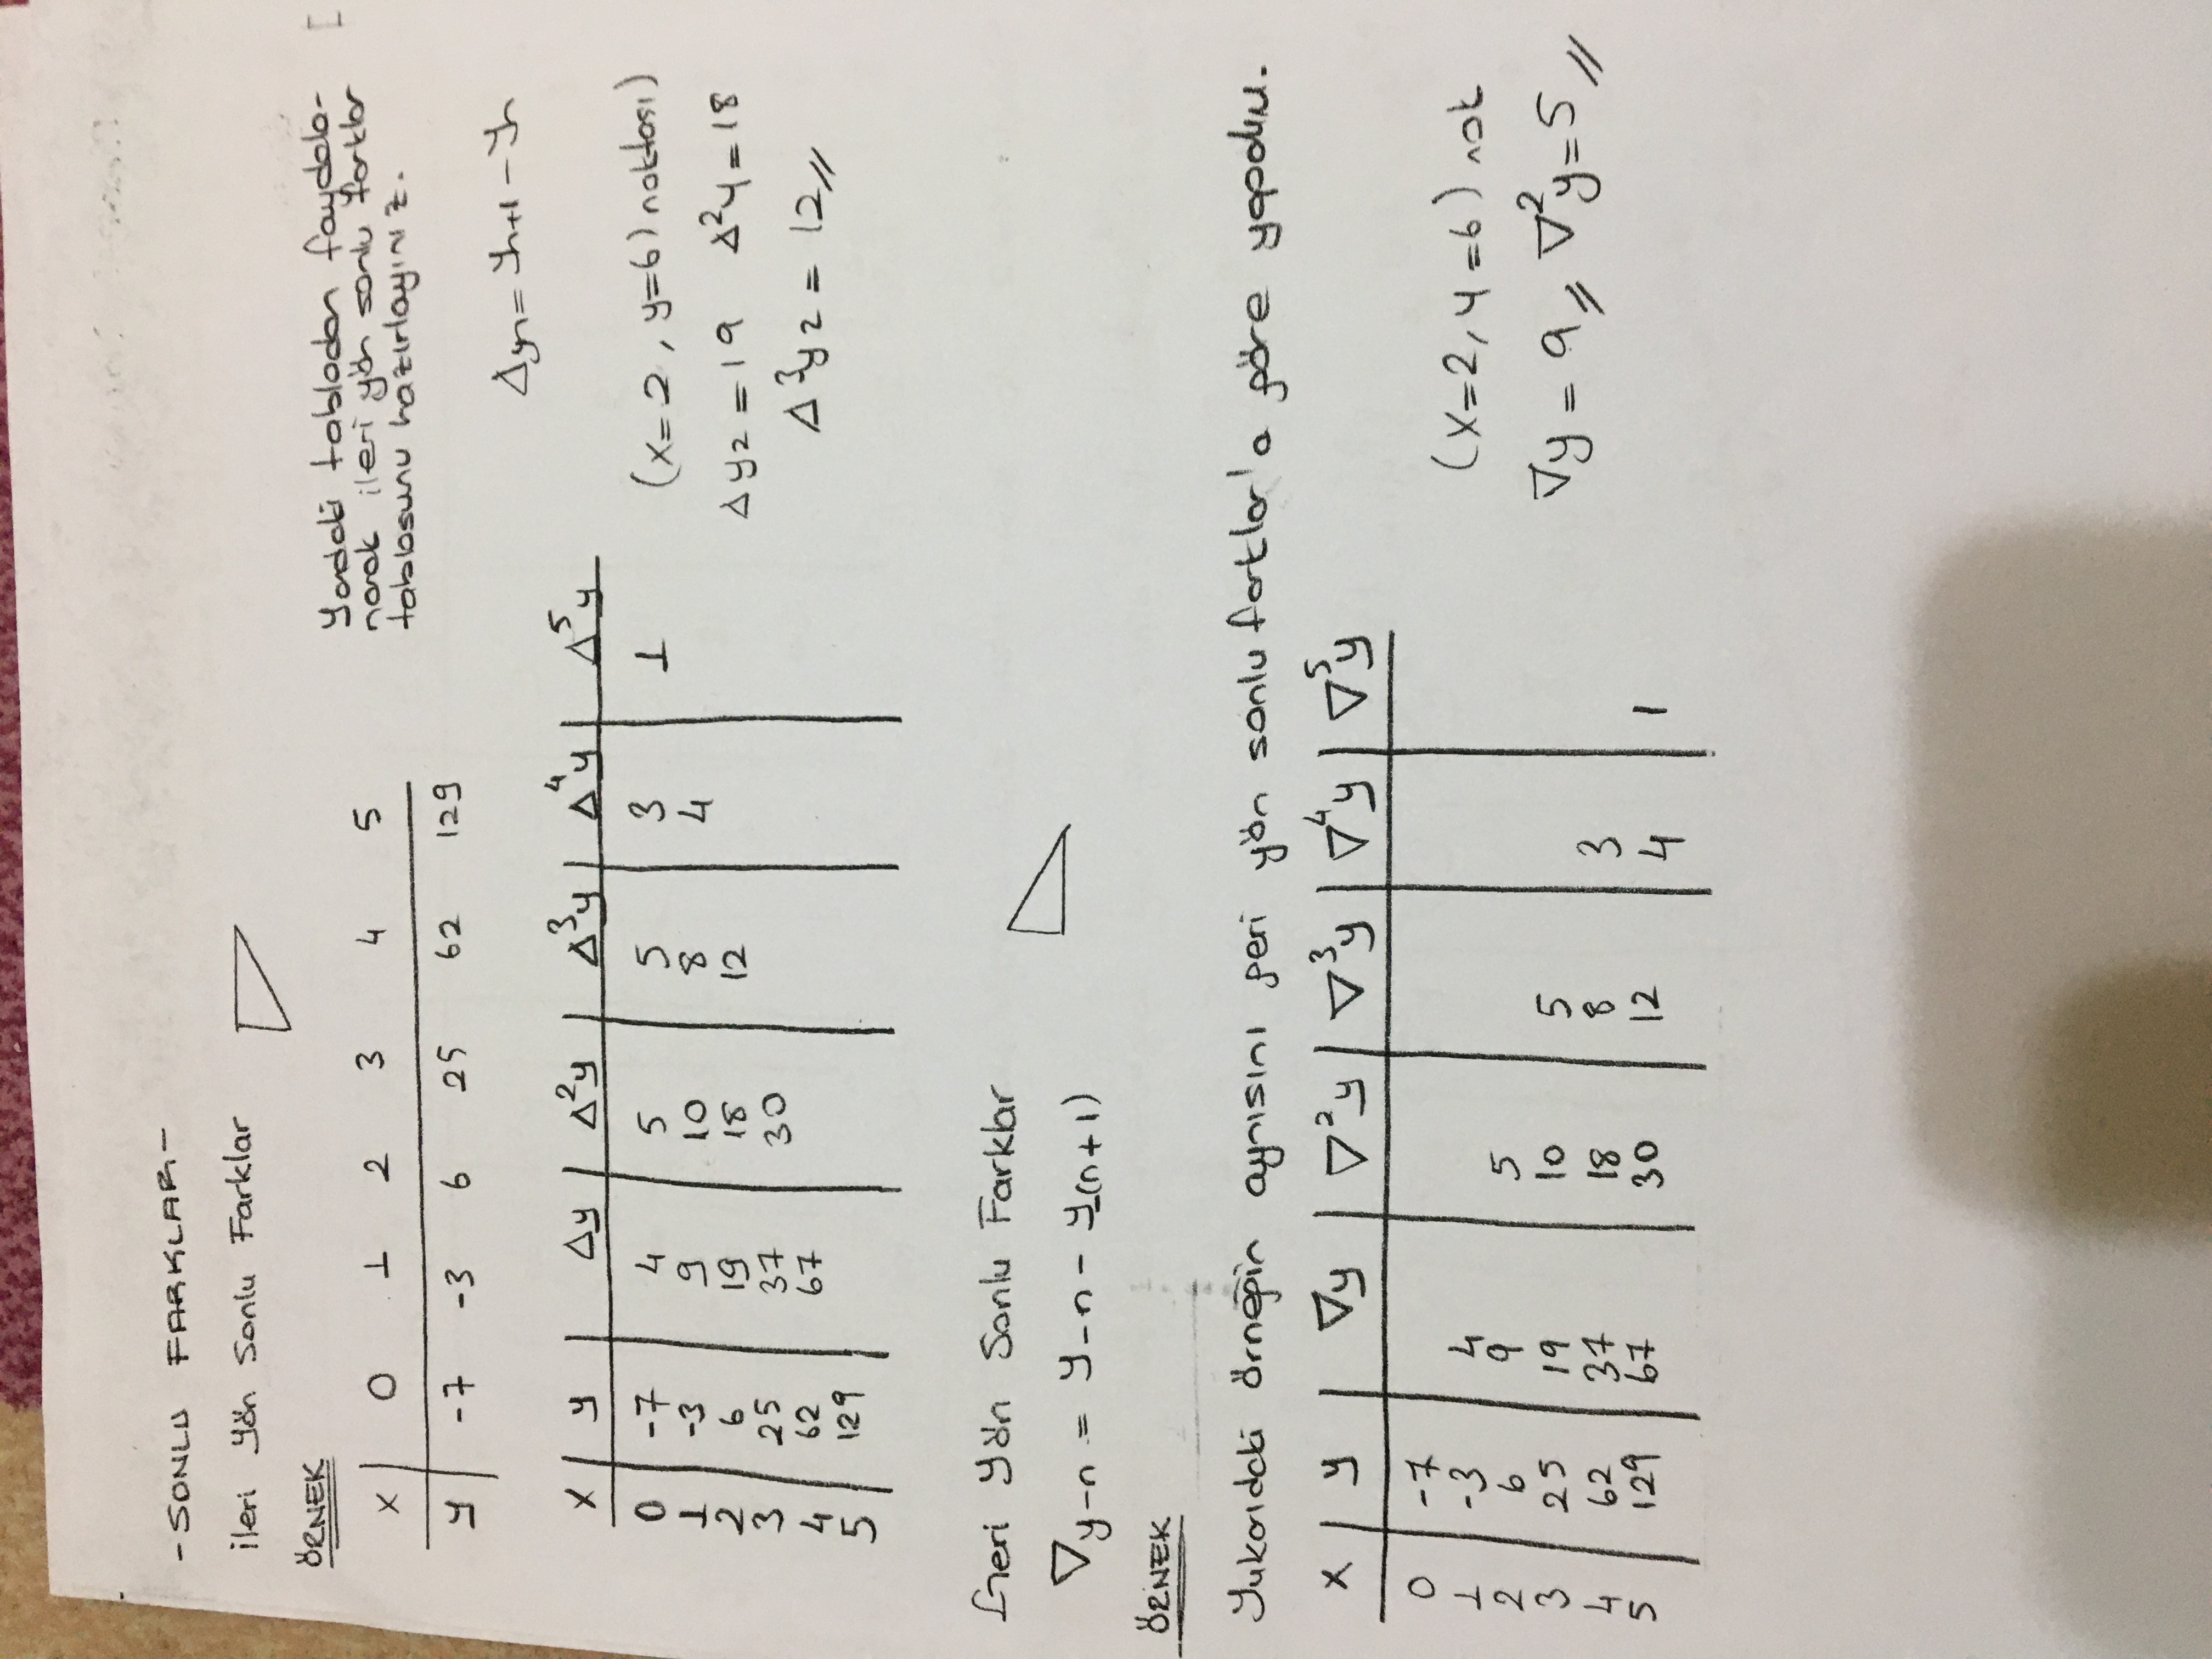 -SONLU FARKLAR-
İleri Yön Sonlu Farklar
ÖRNEK
x 0 1 2 3 4 5
y -7 -3 6 25 62 129
Yandaki tablodan faydala-
narak ileri yön sonlu farklar
tablosunu hazırlayınız.
Δyn = yn+1 - yn
x y Δy Δ²y Δ³y Δ⁴y Δ⁵y
0 -7 4 5 5 3 1
1 -3 9 10 8 4
2 6 19 18 12
3 25 37 30
4 62 67
5 129
(x=2, y=6) noktası)
Δy2 = 19 Δ²y = 18
Δ³y2 = 12//
Geri Yön Sonlu Farklar
∇y-n = y-n - y-(n+1)
ÖRNEK
Yukarıdaki örneğin aynısını geri yön sonlu farklar'a göre yapalım.
x y ∇y ∇²y ∇³y ∇⁴y ∇⁵y
0 -7
1 -3 4
2 6 9 5
3 25 19 10 5
4 62 37 18 8 3
5 129 67 30 12 4 1
(x=2, y=6) nok
∇y = 9// ∇²y = 5//